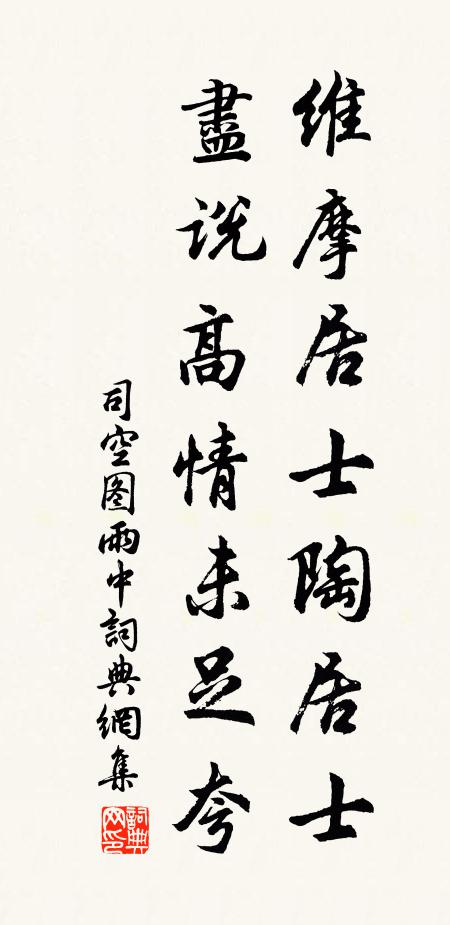 維摩居士陶居士
盡説高情未足夸
司空图雨中詞典網集
詞典网印